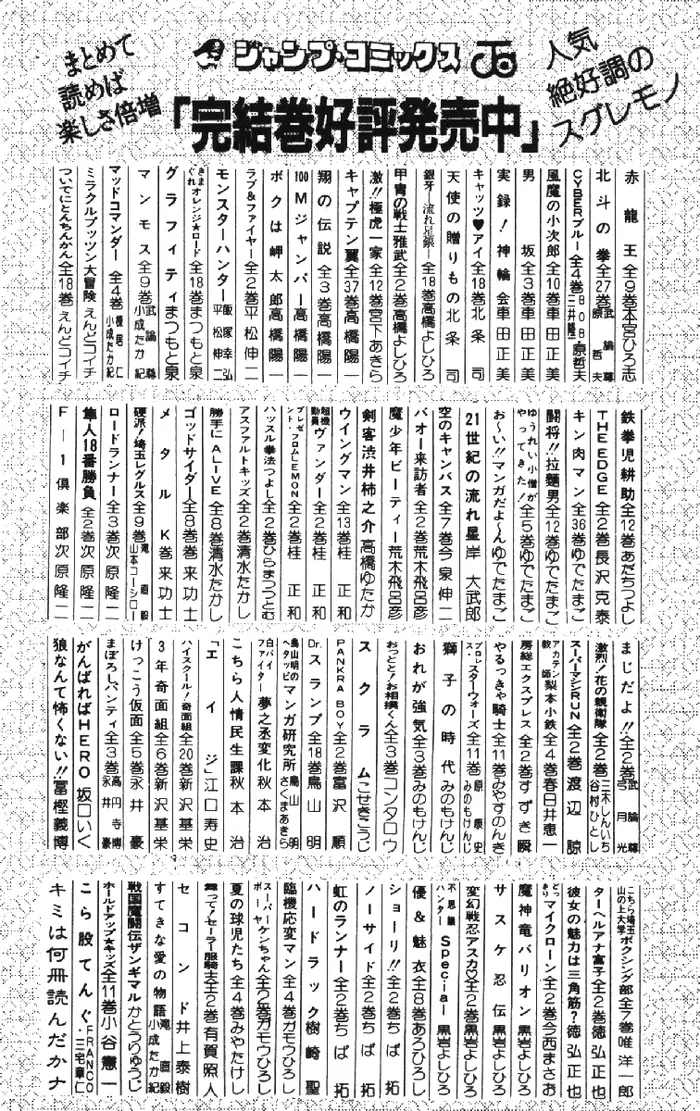 まとめて
読めば
楽しさ倍増
ジャンプ・コミックス
人気
絶好調の
スグレモノ
「完結巻好評発売中」
赤龍王 全9巻 本宮ひろ志
北斗の拳 全27巻 武論尊 原哲夫
CYBERブルー 全4巻 BOB 三井隆一 原哲夫
風魔の小次郎 全10巻 車田正美
男坂 全3巻 車田正美
実録！神輪会 車田正美
キャッツ♥アイ 全18巻 北条司
天使の贈りもの 北条司
銀牙 流れ星銀 全18巻 高橋よしひろ
甲冑の戦士雅武 全2巻 高橋よしひろ
激!!極虎一家 全12巻 宮下あきら
キャプテン翼 全37巻 高橋陽一
翔の伝説 全3巻 高橋陽一
100Mジャンパー 高橋陽一
ボクは岬太郎 高橋陽一
ラブ&ファイヤー 全2巻 平松伸二
モンスターハンター 飯塚幸弘 平松伸二
きまぐれオレンジ★ロード 全18巻 まつもと泉
グラフィティ まつもと泉
マンモス 全9巻 武論尊 小成たか紀
マッドコマンダー 全4巻 榎居仁 小成たか紀
ミラクルプッツン大冒険 えんどコイチ
ついでにとんちんかん 全18巻 えんどコイチ
鉄拳児耕助 全12巻 あだちつよし
THE EDGE 全2巻 長沢克泰
キン肉マン 全36巻 ゆでたまご
闘将!!拉麺男 全12巻 ゆでたまご
ゆうれい小僧がやってきた！ 全5巻 ゆでたまご
お〜い!!マンガだよ〜ん ゆでたまご
21世紀の流れ星 岸大武郎
空のキャンバス 全7巻 今泉伸二
バオー来訪者 全2巻 荒木飛呂彦
魔少年ビーティー 荒木飛呂彦
剣客渋井柿之介 高橋ゆたか
ウイングマン 全13巻 桂正和
超機動員ヴァンダー 全2巻 桂正和
プレゼント・フロムLEMON 全2巻 桂正和
ハッスル拳法つよし 全2巻 ひらまつつとむ
アスファルトキッズ 全2巻 清水たかし
勝手にALIVE 全8巻 清水たかし
ゴッドサイダー 全8巻 巻来功士
メタルK 巻来功士
硬派！埼玉レグルス 全9巻 滝直毅 山本コーシロー
ロードランナー 全3巻 次原隆二
隼人18番勝負 全2巻 次原隆二
F1倶楽部 次原隆二
まじだよ!! 全2巻 武論尊 弓月光
激烈！花の親衛隊 全2巻 三木しんいち 谷村ひとし
スーパーマシンRUN 全2巻 渡辺諒
アカテン教師梨本小鉄 全4巻 春日井恵一
房総エクスプレス 全2巻 すずき賢
やるっきゃ騎士 全11巻 みやすのんき
プロレス・スターウォーズ 全11巻 原康史 みのもけんじ
獅子の時代 みのもけんじ
おれが強気 全3巻 みのもけんじ
おっとと！お相撲くん 全3巻 コンタロウ
スクラム こせきこうじ
PANKRA BOY 全2巻 富沢順
Dr.スランプ 全18巻 鳥山明
鳥山明のヘタッピマンガ研究所 鳥山明 さくまあきら
白バイファイター夢之丞変化 秋本治
こちら人情民生課 秋本治
「エイジ」 江口寿史
ハイスクール！奇面組 全20巻 新沢基栄
3年奇面組 全6巻 新沢基栄
けっこう仮面 全5巻 永井豪
まぼろしパンティ 全3巻 高円寺博 永井豪
がんばればHERO 坂口いく
狼なんて怖くない!! 冨樫義博
こちら埼玉山の上大学ボクシング部 全7巻 唯洋一郎
ターヘルアナ富子 全2巻 徳弘正也
彼女の魅力は三角筋？ 徳弘正也
どっきりマイクローン 全2巻 今西まさお
魔神竜バリオン 黒岩よしひろ
サスケ忍伝 黒岩よしひろ
変幻戦忍アスカ 全2巻 黒岩よしひろ
不思議ハンターSpecial 黒岩よしひろ
優&魅衣 全8巻 あろひろし
ショーリ!! 全2巻 ちば拓
ノーサイド 全2巻 ちば拓
虹のランナー 全2巻 ちば拓
ハードラック 樹崎聖
臨機応変マン 全4巻 ガモウひろし
スーパーボーヤ ケンちゃん 全2巻 ガモウひろし
夏の球児たち 全4巻 みやたけし
舞って！セーラー服騎士 全2巻 有賀照人
セコンド 井上泰樹
すてきな愛の物語 滝直毅 小成たか紀
戦国魔闘伝ザンギマル かとうりゅうじ
ホールドアップ★キッズ 全11巻 小谷憲一
こら股てんぐ FRANCO 三宅章仁
キミは何冊読んだかナ